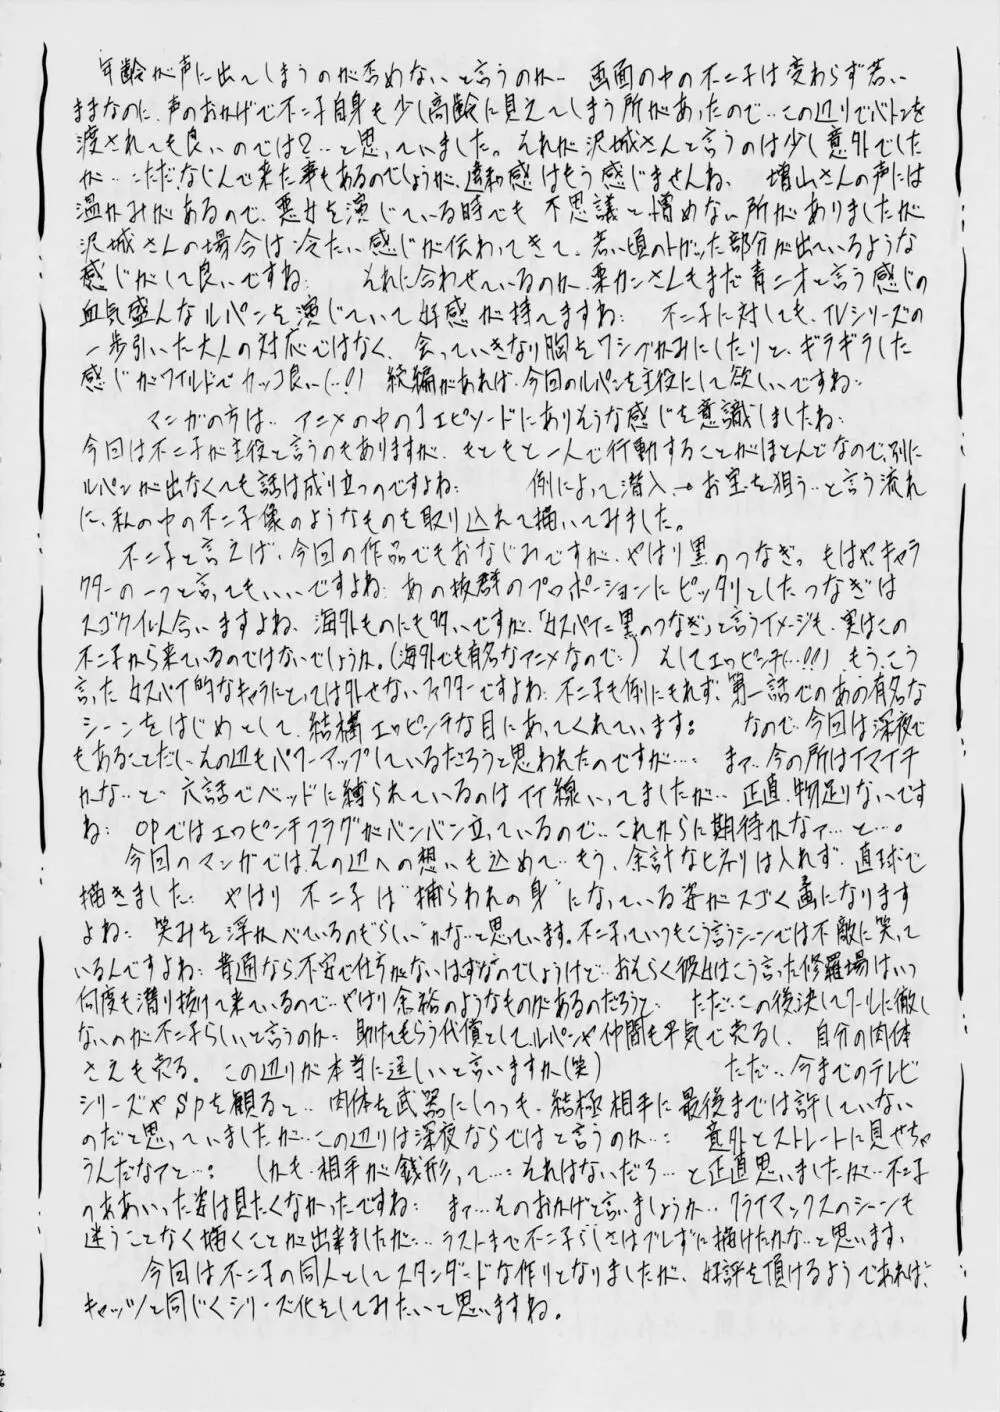 年齢が声に出てしまうのが否めないと言うのか… 画面の中の不二子は変わらず若い
ままなのに、声のおかげで不二子自身も少し高齢に見えてしまう所があったので…この辺りでバトンを
渡されても良いのでは?…と思っていました。それが沢城さんと言うのは少し意外でした
が…ただ、なじんで来た事もあるのでしょうが、違和感はもう感じませんね、 増山さんの声には
温かみがあるので、悪女を演じている時でも 不思議と憎めない所がありましたが
沢城さんの場合は冷たい感じが伝わってきて、若い頃のトガった部分が出ているような
感じがして良いですね: それに合わせているのか、栗カンさんもまだ青二才と言う感じの
血気盛んなルパンを演じていて好感が持てますね: 不二子に対しても、TVシリーズの
一歩引いた大人の対応ではなく、会っていきなり胸をワシづかみにしたりと、ギラギラした
感じがワイルドでカッコ良い(…!) 続編があれば、今回のルパンを主役にして欲しいですね…
マンガの方は… アニメの中の1エピソードにありそうな感じを意識しましたね:
今回は不二子が主役と言うのもありますが、もともと一人で行動することがほとんどなので、別に
ルパンが出なくても話は成り立つのですよね: 例によって潜入→お宝を狙う…と言う流れ
に、私の中の不二子像のようなものを取り込んで描いてみました。
不二子と言えば、今回の作品でもおなじみですが、やはり黒のつなぎ。もはや、キャラ
クターの一つと言ってもいいですよね: あの抜群のプロポーションにピッタリとしたつなぎは
スゴク似合いますよね、海外ものにも多いですが、「女スパイに黒のつなぎ」と言うイメージも、実はこの
不二子から来ているのではないでしょうか。(海外でも有名なアニメなので…) そしてエッピンチ(…!!) もう、こう
言った女スパイ的なキャラにとっては外せないファクターですよね: 不二子も例にもれず、第一話でのあの有名な
シーンをはじめとして、結構エッピンチな目にあってくれています: なので、今回は深夜で
もあることだし、その辺もパワーアップしているだろうと思われたのですが…: まァ…今の所はイマイチ
かな…と… 六話でベッドに縛られているのはイイ線いってましたが… 正直、物足りないです
ね: OPではエッピンチフラグがバンバン立っているので…これからに期待かなァ…と…。
今回のマンガではその辺への想いも込めて…もう、余計なヒネリは入れず、直球で
描きました: やはり 不二子は"捕らわれの身"になっている姿がスゴく画になります
よね: 笑みを浮かべているのも"らしい"かな…と思っています。不二子っていつもこう言うシーンでは不敵に笑って
いるんですよね: 普通なら、不安で仕方がないはずなのでしょうけど…おそらく彼女はこう言った修羅場はいつ
何度も潜り抜けて来ているので…やはり余裕のようなものがあるのだろうと… ただ…この後決してクールに徹し
ないのが不二子らしいと言うのか: 助けてもらう代償としてルパンや仲間も平気で売るし、 自分の肉体
さえも売る。この辺りが本当に逞しいと言いますか(笑) ただ…今までのテレビ
シリーズやSPを観ると… 肉体を武器にしつつも、結極相手に最後までは許していない
のだと思っていましたが…この辺りは深夜ならではと言うのか…: 意外とストレートに見せちゃ
うんだなァと…: しかも、相手が銭形って…:それはないだろ…と正直思いましたが…不二子
のああいった姿は見たくなかったですね: まァ…そのおかげと言いましょうか…クライマックスのシーンも
迷うことなく描くことが出来ましたが…ラストまで不二子らしさはブレずに描けたかな…と思います、
今回は不二子の同人としてスタンダードな作りとなりましたが、好評を頂けるようであれば、
キャッツと同じくシリーズ化をしてみたいと思いますね。